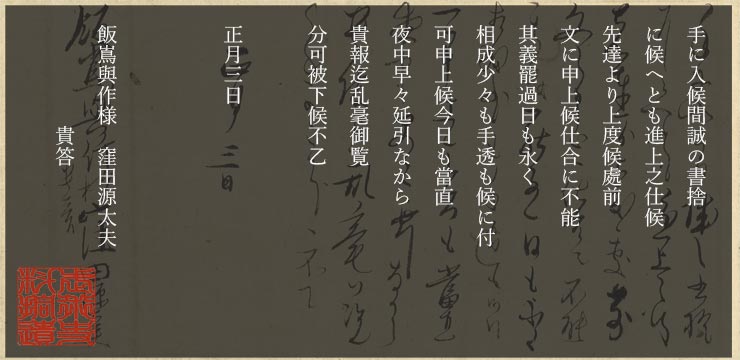 手に入候間誠の書捨
に候へとも進上之仕候
先達より上度候處前
文に申上候仕合に不能
其義罷過日も永く
相成少々も手透も候に付
可申上候今日も當直
夜中早々延引なから
貴報迄乱毫御覧
分可被下候不乙
正月三日
飯嶌與作様 窪田源太夫
貴答